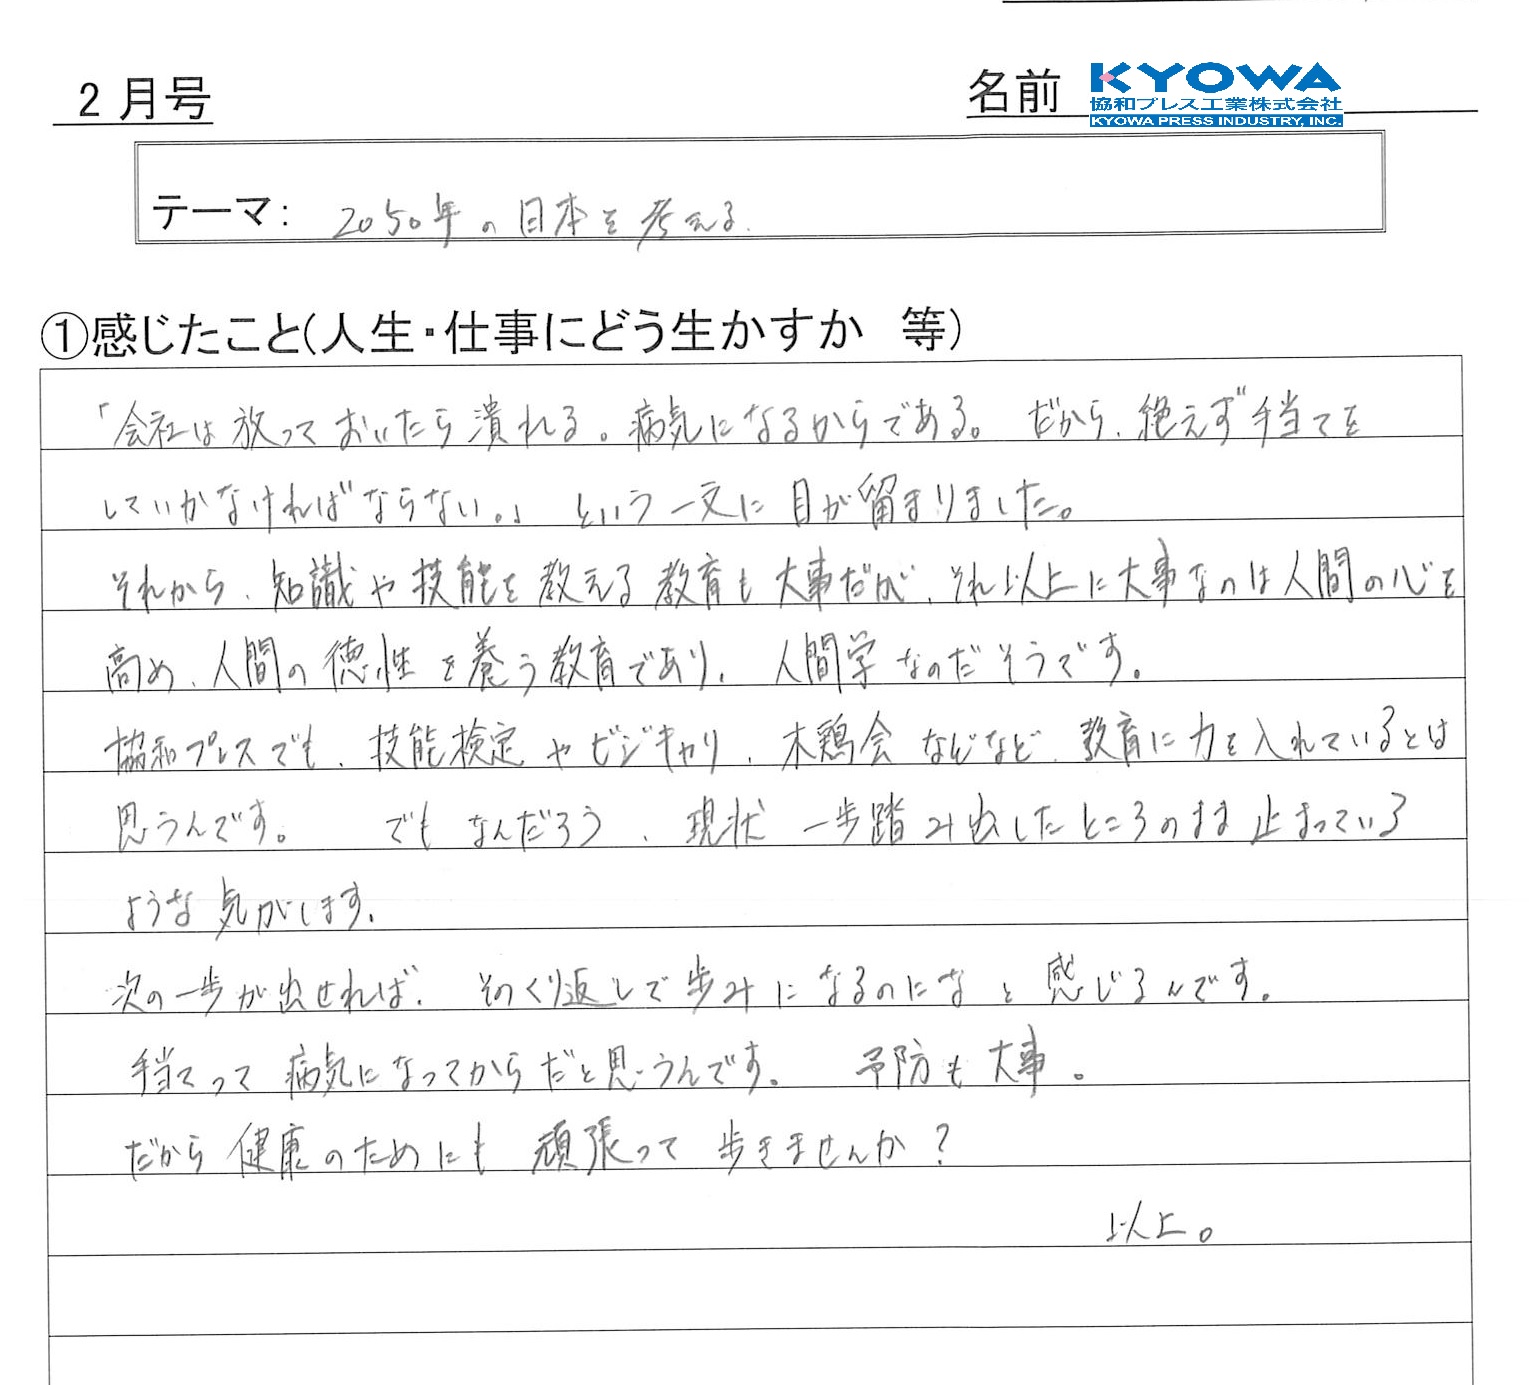 2月号
名前 KYOWA
協和プレス工業株式会社
KYOWA PRESS INDUSTRY, INC.
テーマ: 2050年の日本を考える.
①感じたこと(人生・仕事にどう生かすか 等)
「会社は放っておいたら潰れる。病気になるからである。だから、絶えず手当てを
していかなければならない。」という一文に目が留まりました。
それから、知識や技能を教える教育も大事だが、それ以上に大事なのは人間の心を
高め、人間の徳性を養う教育であり、人間学なのだそうです。
協和プレスでも、技能検定やビジキャリ、木鶏会などなど、教育に力を入れているとは
思うんです。 でもなんだろう、現状 一歩踏み出したところのまま止まっている
ような気がします。
次の一歩が出せれば、そのくり返しで歩みになるのになと感じるんです。
手当てって病気になってからだと思うんです。 予防も大事。
だから健康のためにも頑張って歩きませんか?
以上。